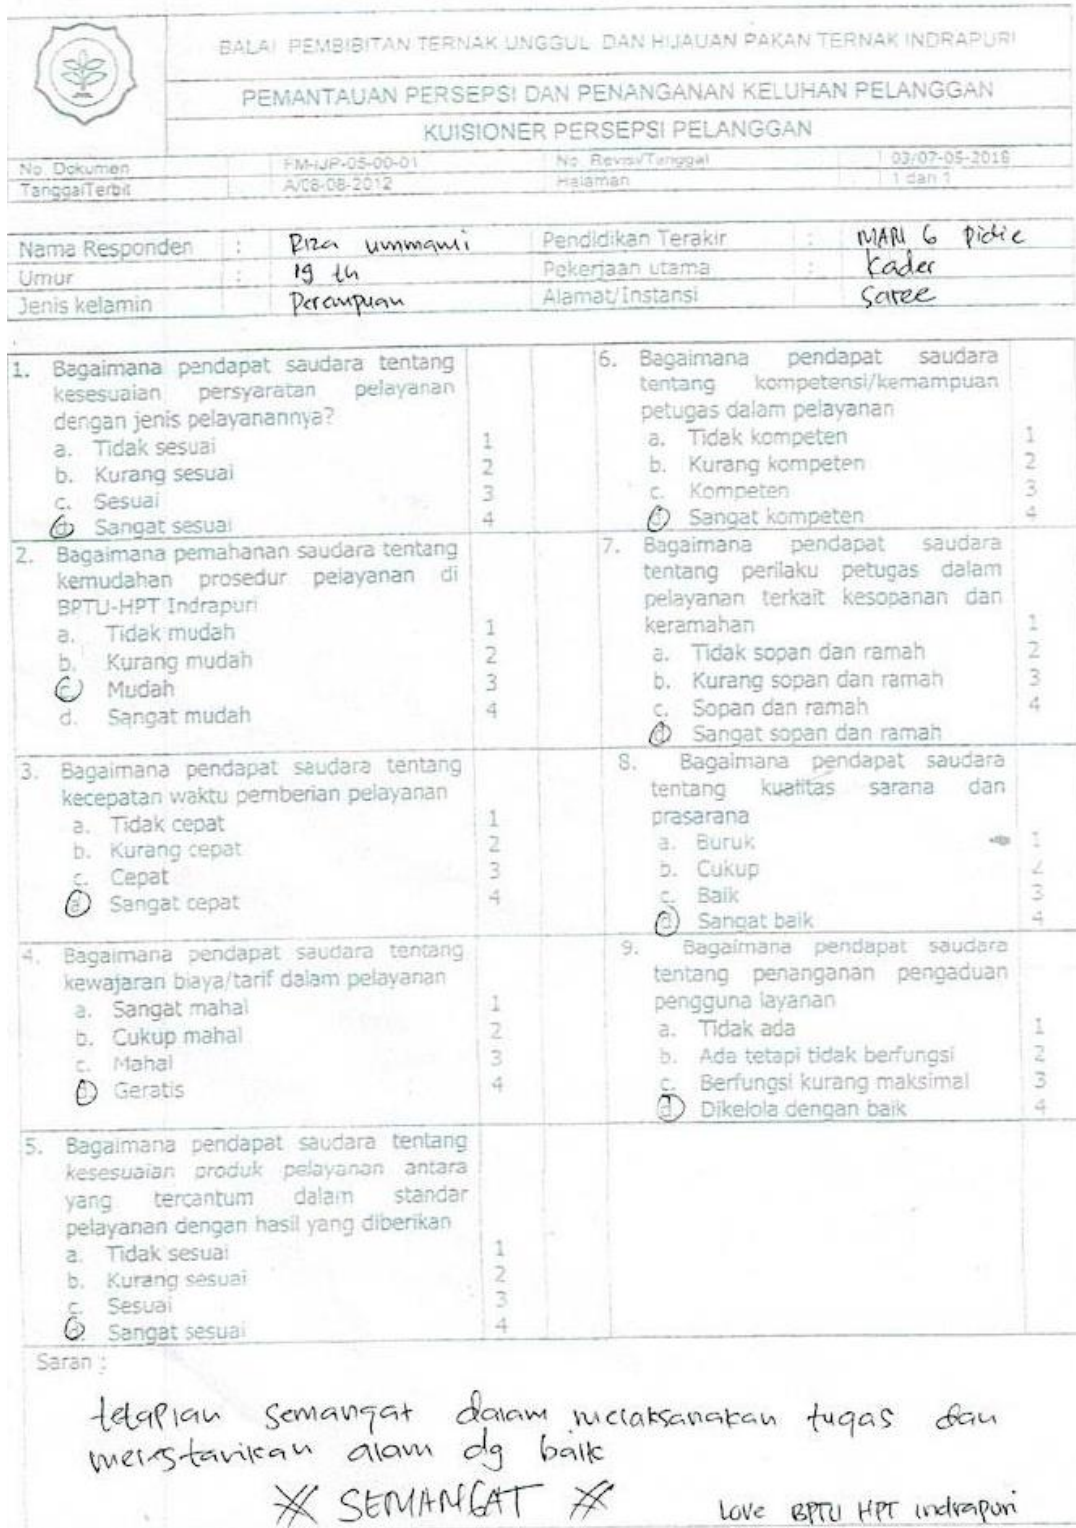 BALAI PEMBIBITAN TERNAK UNGGUL DAN HIJAUAN PAKAN TERNAK INDRAPURI
PEMANTAUAN PERSEPSI DAN PENANGANAN KELUHAN PELANGGAN
KUISIONER PERSEPSI PELANGGAN
No. Dokumen FM-IJP-05-00-01 No. Revisi/Tanggal 03/07-05-2018
TanggalTerbit A/C8-08-2012 Halaman 1 dari 1
Nama Responden : Riza ummami Pendidikan Terakir : MAN 6 Pidie
Umur : 19 th Pekerjaan utama : Kader
Jenis kelamin Perempuan Alamat/Instansi Saree
1. Bagaimana pendapat saudara tentang
kesesuaian persyaratan pelayanan
dengan jenis pelayanannya?
a. Tidak sesuai 1
b. Kurang sesuai 2
c. Sesuai 3
d. Sangat sesuai 4
2. Bagaimana pemahanan saudara tentang
kemudahan prosedur pelayanan di
BPTU-HPT Indrapuri
a. Tidak mudah 1
b. Kurang mudah 2
c. Mudah 3
d. Sangat mudah 4
3. Bagaimana pendapat saudara tentang
kecepatan waktu pemberian pelayanan
a. Tidak cepat 1
b. Kurang cepat 2
c. Cepat 3
d. Sangat cepat 4
4. Bagaimana pendapat saudara tentang
kewajaran biaya/tarif dalam pelayanan
a. Sangat mahal 1
b. Cukup mahal 2
c. Mahal 3
d. Geratis 4
5. Bagaimana pendapat saudara tentang
kesesuaian produk pelayanan antara
yang tercantum dalam standar
pelayanan dengan hasil yang diberikan
a. Tidak sesuai 1
b. Kurang sesuai 2
c. Sesuai 3
d. Sangat sesuai 4
6. Bagaimana pendapat saudara
tentang kompetensi/kemampuan
petugas dalam pelayanan
a. Tidak kompeten 1
b. Kurang kompeten 2
c. Kompeten 3
d. Sangat kompeten 4
7. Bagaimana pendapat saudara
tentang perilaku petugas dalam
pelayanan terkait kesopanan dan
keramahan 1
a. Tidak sopan dan ramah 2
b. Kurang sopan dan ramah 3
c. Sopan dan ramah 4
d. Sangat sopan dan ramah
8. Bagaimana pendapat saudara
tentang kualitas sarana dan
prasarana
a. Buruk 1
b. Cukup 2
c. Baik 3
d. Sangat baik 4
9. Bagaimana pendapat saudara
tentang penanganan pengaduan
pengguna layanan
a. Tidak ada 1
b. Ada tetapi tidak berfungsi 2
c. Berfungsi kurang maksimal 3
d. Dikelola dengan baik 4
Saran :
tetapian semangat dalam melaksanakan tugas dan
melestarikan alam dg baik
SEMANGAT
Love BPTU HPT indrapuri